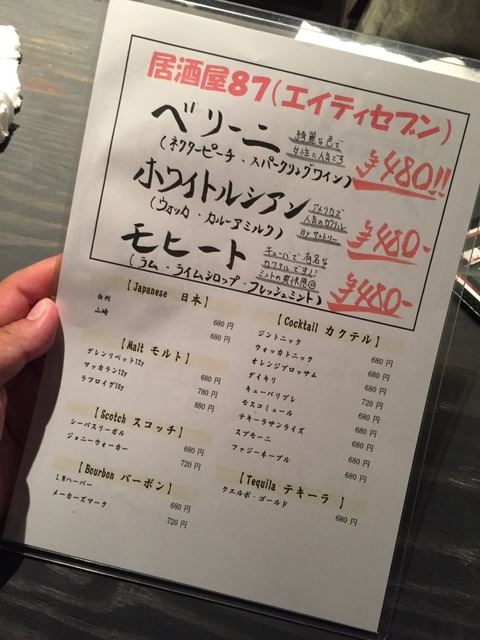 居酒屋87(エイティセブン)
ベリーニ
綺麗な色で
女性に人気どころ
(ネクターピーチ、スパークリングワイン)
¥480!!
ホワイトルシアン
アメリカで
人気のカクテル
By サントリー
(ウォッカ、カルーアミルク)
¥480-
モヒート
キューバで有名な
カクテルです!
ミントの爽快感◎
(ラム、ライムシロップ、フレッシュミント)
¥480-
【Japanese 日本】
白州 680円
山崎 680円
【Malt モルト】
グレンリベット12y 680円
マッカラン12y 780円
ラフロイグ10y 880円
【Scotch スコッチ】
シーバスリーガル 680円
ジョニーウォーカー 720円
【Bourbon バーボン】
I.Wハーパー 680円
メーカーズマーク 720円
【Cocktail カクテル】
ジントニック 680円
ウォッカトニック 680円
オレンジブロッサム 680円
ダイキリ 720円
キューバリブレ 680円
モスコミュール 680円
テキーラサンライズ 680円
スプモーニ 680円
ファジーネーブル 680円
【Tequila テキーラ】
クエルボ・ゴールド 680円